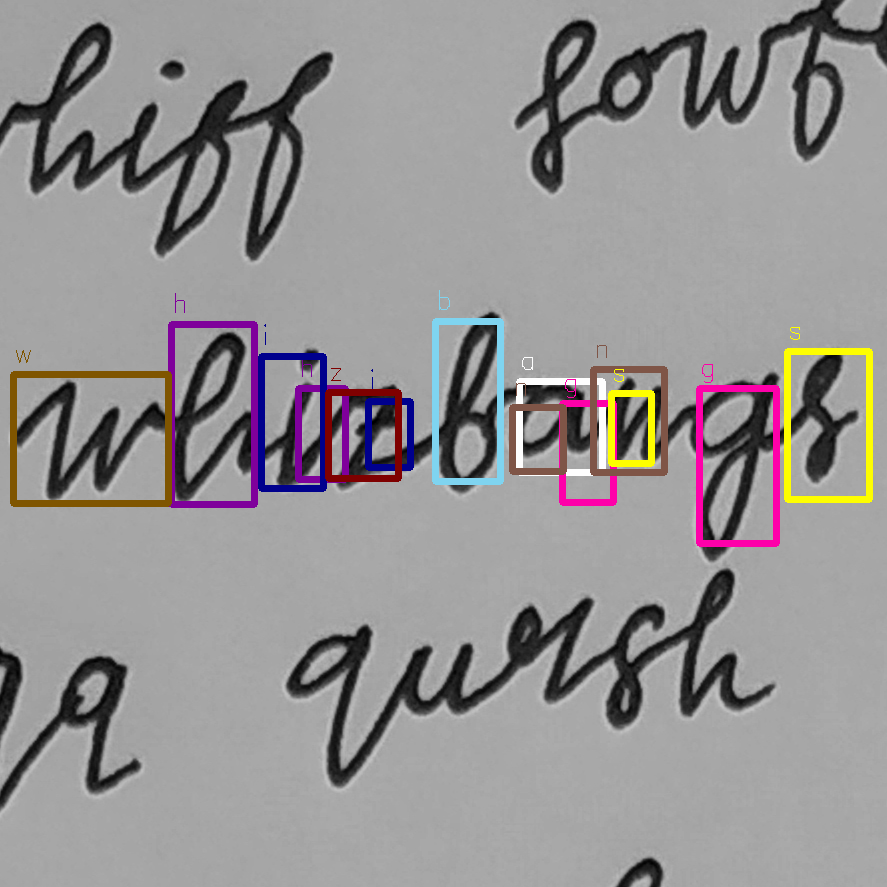 hiff sowf
w h i h z i b a g n s g s
whizbangs
qursh